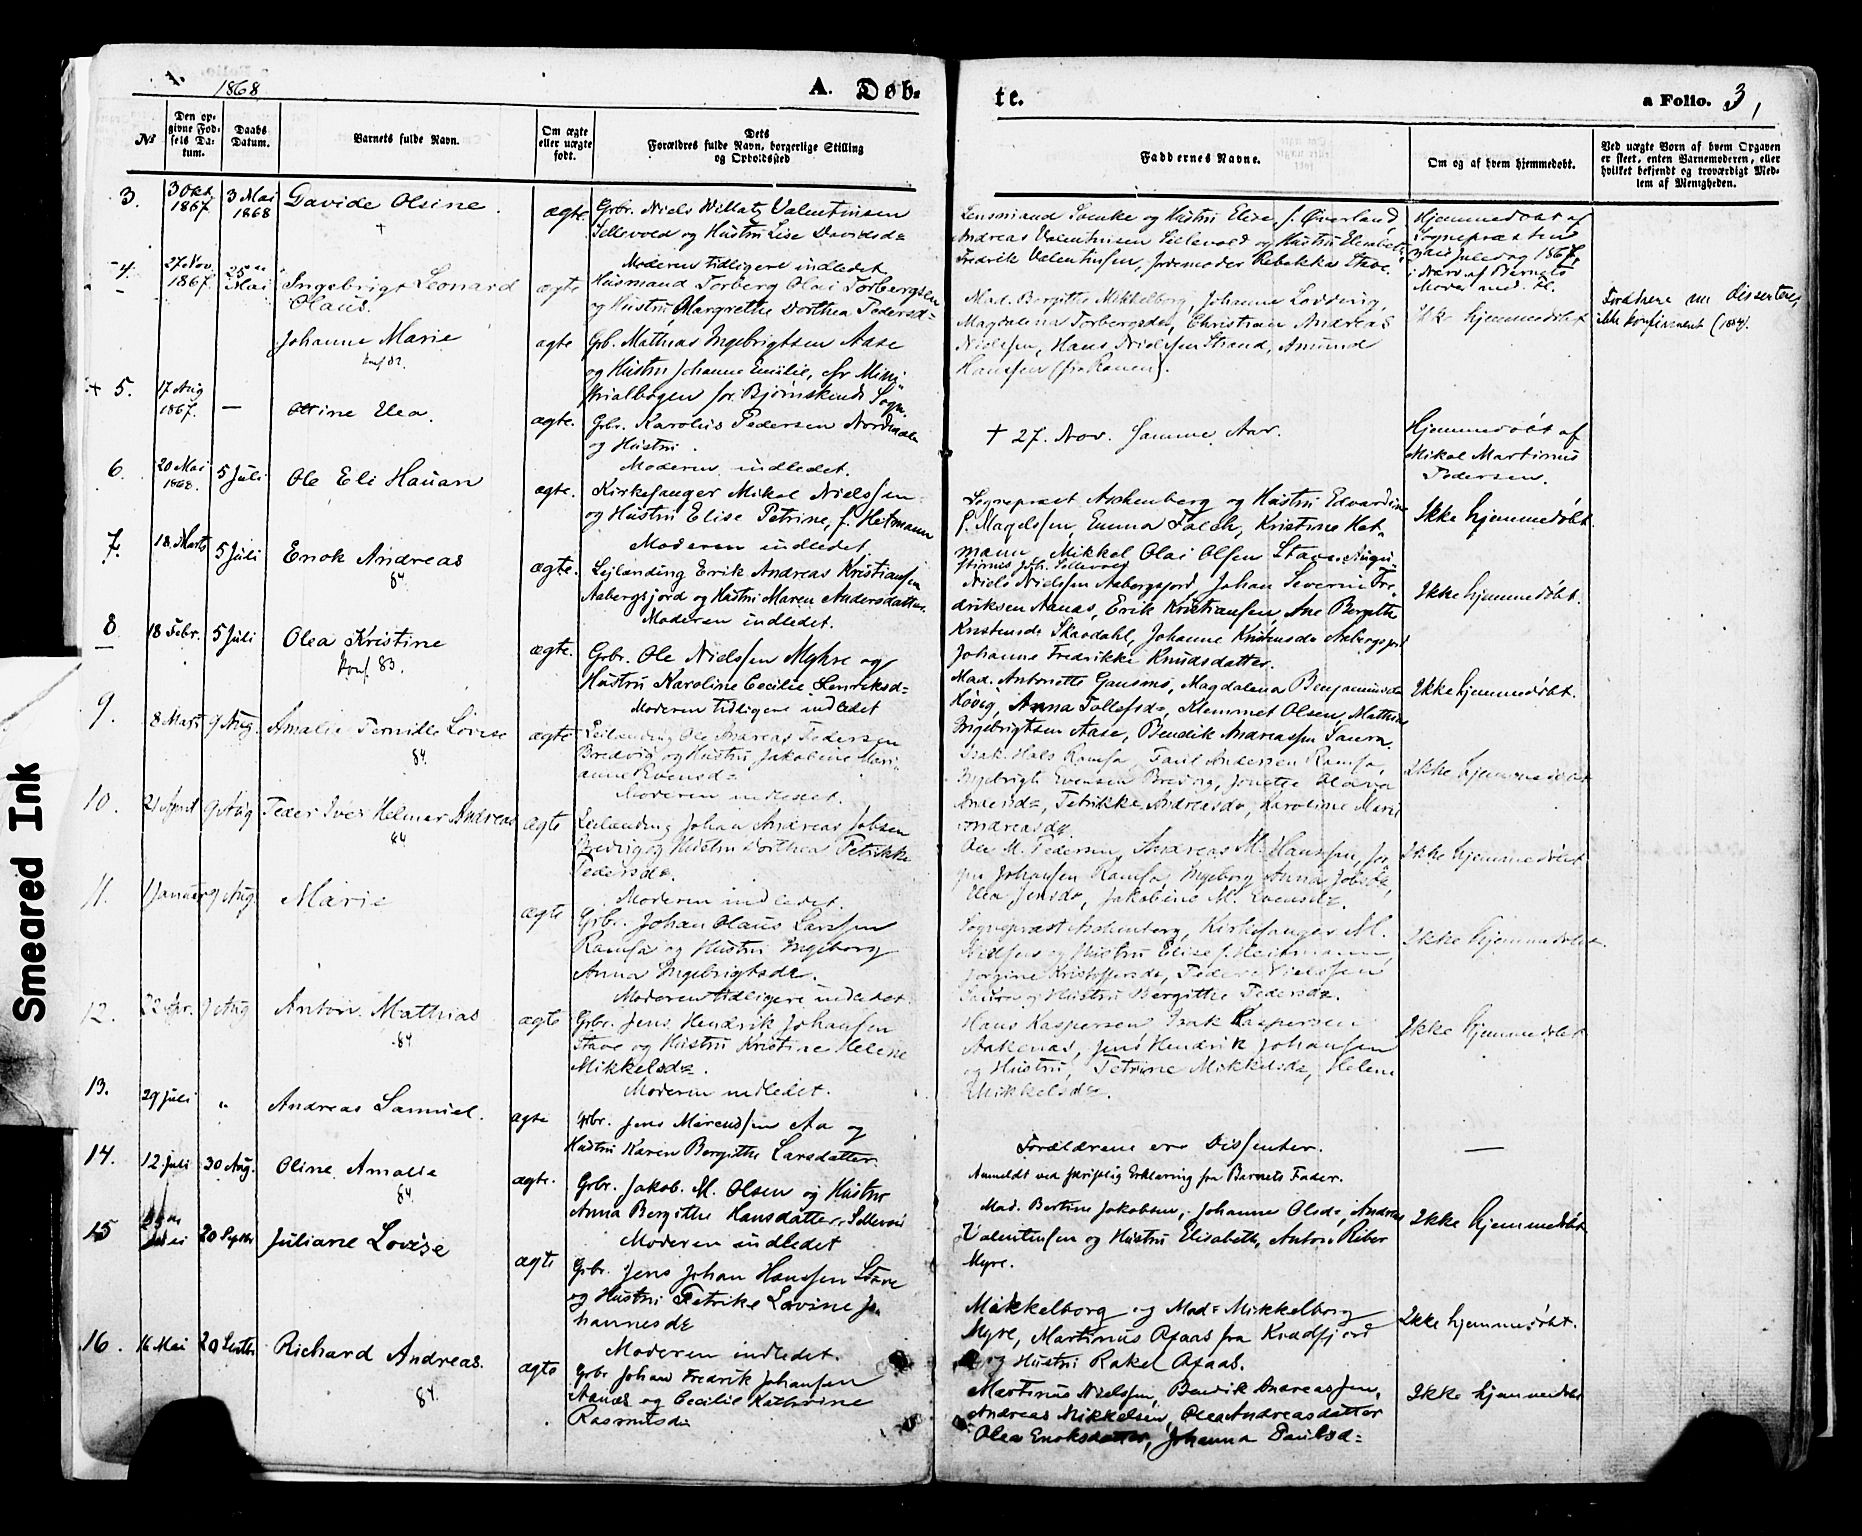 1868
A. Døb-
te.
a Folio. 3,
№
Den op-
givne Fød-
sels Da-
tum.
Daabs
Datum.
Barnets fulde Navn.
Om ægte
eller uægte
født.
Dets
Forældres fulde Navn, borgerlige Stilling
og Opholdssted
Faddernes Navne.
Om og af hvem hjemmedøbt.
Ved uægte Børn af hvem Opgaven
er skeet, enten Barnemoderen, eller
hvilket bekjendt og troværdigt Med-
lem af Menigheden.
3.
3 Okt
1867
3 Mai
1868
Davide Olsine
+
ægte
Grbr. Niels Willatz Valentinsen
Sellevold og Hustru Lise Davidsd=
Moderen tidligere indledet
Lensmand Coenke og Hustru Elise f. Øverland,
Andreas Valentinsen Sellevold og Hustru Elisabeth,
Fredrik Valentinsen, Jordemoder Rebekka Stave.
Hjemmedøbt af
Sognepræsten
Juledag 1867,
i Nærv. af Barnets
Moder med Fl.
4.
27 Nov.
1867.
25de
Mai
Ingebrigt Leonard
Olaus.
ægte
Husmand Torberg Olai Torbergsen
og Hustru Margrethe Dorthea Pedersd=
Mad. Bergitte Mikkelborg, Johanna Lodding,
Magdalena Torbergsdr, Christian Andreas
Nielssen, Hans Nielssen Strand, Amund
Hanssen (fra Ranen).
Ikke hjemmedøbt
Forældrene nu dissentere,
ikke konfirmeret (1884).
Johanne Marie
konf 82.
ægte
Grb. Mathias Ingebrigtsen Aase
og Hustru Johanne Emilie, cfr Mini-
strialbogen for Bjørnskinds Sogn.
+ 5.
17 Aug
1867.
—
Ottine Elea.
ægte.
Grbr. Karolius Pedersen Nordmæla
og Hustru.
Moderen indledet.
+ 27. Nov. samme Aar.
Hjemmedøbt af
Mikal Martinus
Pedersen.
6.
20 Mai
1868.
5 Juli
Ole Eli Hauan
ægte.
Kirkesanger Mikal Nielssen
og Hustru Elise Petrine, f. Heitmann
Moderen indledet
Sognepræst Aschenberg og Hustru Edvardine
f. Magelssen, Emma Falch, Kristine Het-
mann, Mikkel Olai Olsen Stave, Augu-
stinus Joh. Sellevold
Ikke hjemmedøbt
7.
18 Marts
5 Juli
Enok Andreas
84
ægte.
Leilænding Erik Andreas Kristiansen
Aabergsjord og Hustru Maren Andersdatter.
Moderen indledet.
Niels Nielsen Aabergsjord, Johan Severin Fre-
driksen Aanæs, Erik Kristiansen, Ane Bergitte
Kristensdr Skavdahl, Johanne Kristensdr Aabergsjord
Johanne Fredrikke Knudsdatter.
Ikke hjemmedøbt.
8
18 Febr.
5 Juli
Olea Kristine
konf. 83.
ægte.
Grbr. Ole Nielssen Myhre og
Hustru Karoline Cecilie Henriksd=
Moderen tidligere indledet
Mad. Antonette Gausnes, Magdalena Benjaminsdr
Høvig, Anna Tollefsdr, Klemmet Olsen, Mathias
Ingebrigtsen Aase, Bendik Andreassen Saura.
Ikke hjemmedøbt.
9.
8 Mart
9 Aug.
Amalie Pernille Lovise
84.
ægte
Leilænding Ole Andreas Pedersen
Bredvig og Hustru Jakobine Mari-
anne Evensd=
Moderen indledet.
Isak Hals Ramsa, Paul Andersen Ramsa,
Ingebrigt Evensen Bredvig, Jonette Olava
Andersdr, Petrikke Andreasdr, Karoline Marie
Andreasdr.
Ikke hjemmedøbt
10.
21 April
9 Aug
Peder Iver Helmer Andreas
84
ægte
Leilænding Johan Andreas Jobsen
Bredvig og Hustru Dorthea Petrikke
Pedersdr.
Moderen indledet.
Ole M. Pedersen, Andreas M. Hanssen, Jør-
gen Johansen Ramsa, Ingeborg Anna Jobsdr,
Olea Jensdr, Jakobine M. Evensdr.
Ikke hjemmedøbt
11.
1 Januar
9 Aug.
Marie
ægte
Grbr. Johan Olaus Larssen
Ramsa og Hustru Ingeborg
Anna Ingebrigtsdr.
Moderen tidligere indledet
Sognepræst Aschenberg, Kirkesanger M.
Nielsen og Hustru Elise f. Heitmann,
Jørgine Kristoffersdr, Peder Nielssen
Saura og Hustru Bergitthe Pedersdr.
Ikke hjemmedøbt.
12.
22 Apr.
9 Aug
Anton Mathias
84
ægte
Grbr. Jens Hendrik Johansen
Stave og Hustru Kristine Helene
Mikkelsdr.
Moderen indledet.
Hans Kaspersen, Isak Kaspersen
Aakenæs, Jens Hendrik Johansen
og Hustru, Petrine Mikkelsdr, Helene
Mikkelsdr.
Ikke hjemmedøbt
13.
29 juli
"
Andreas Samuel.
ægte
Grbr. Jens Marensen Aa og
Hustru Karen Bergitthe Larsdatter.
Forældrene ere Dissenter.
Anmeldt ved skriftlig Erklæring fra Barnets Fader.
—
14.
12 juli
30 Aug.
Oline Amalie
84.
ægte.
Grbr. Jakob. M. Olsen og Hustru
Anna Bergithe Hansdatter, Sellevoll
Moderen indledet
Mad. Bertine Jakobsen, Johanne Olsdr, Andreas
Valentinsen og Hustru Elisabeth, Anton Riber
Myre.
Ikke hjemmedøbt
15
20 Septbr
Juliane Lovise
ægte
Grbr. Jens Johan Hanssen Stave
og Hustru Petrike Lovine Jo-
hannesdr
Moderen indledet.
Mikkelborg og Mad= Mikkelborg
Myre, Martinus Aaas fra Kvædfjord
og Hustru Rakel Aaas.
Ikke hjemmedøbt.
16.
16 Mai
20 Septbr
Richard Andreas.
84.
ægte
Grbr Johan Fredrik Johansen
Aanæs og Cecilie Kathrine
Rasmusdr
Martinus Nielssen, Bendik Andreassen,
Andreas Mikkelsen, Olea Andreasdatter
Olea Enoksdatter, Johanna Paulsd=
Ikke hjemmedøbt
Smeared Ink